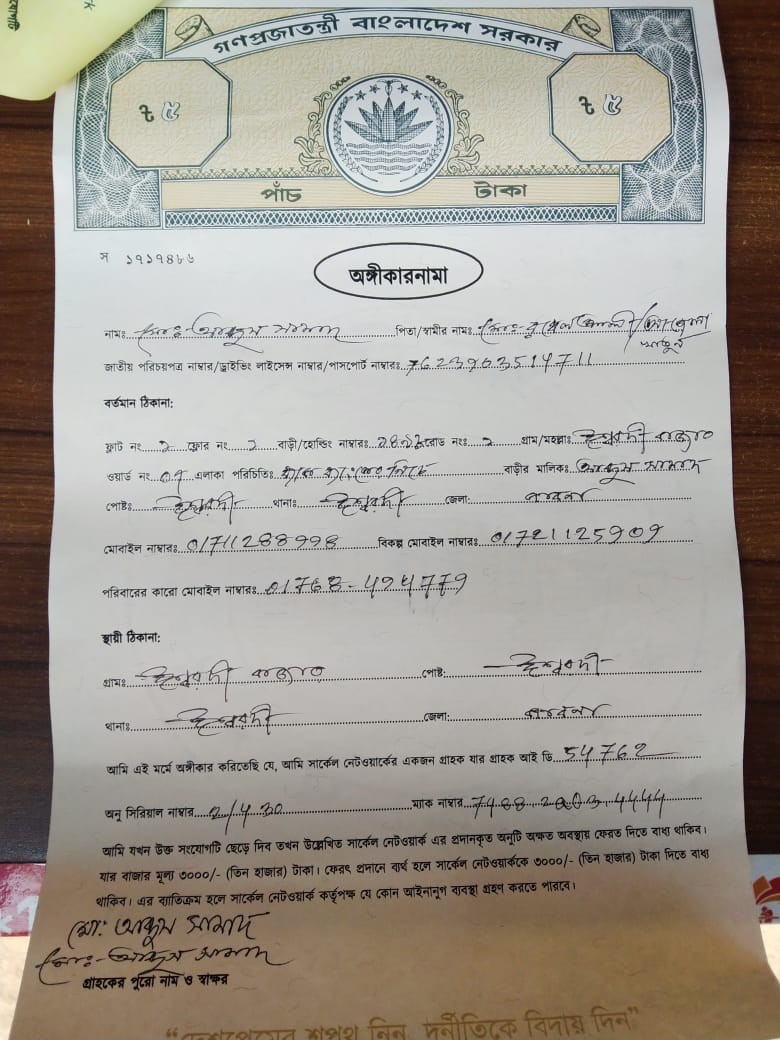 গণপ্রজাতন্ত্রী বাংলাদেশ সরকার
৳ ৫ ৳ ৫
পাঁচ টাকা
স ১৭১৭৪৮৬
অঙ্গীকারনামা
নামঃ মোঃ- আব্দুস সামাদ পিতা/স্বামীর নামঃ মোঃ-
জাতীয় পরিচয়পত্র নাম্বার/ড্রাইভিং লাইসেন্স নাম্বার/পাসপোর্ট নাম্বারঃ
বর্তমান ঠিকানা:
ফ্লাট নং ২ ফ্লোর নং ২ বাড়ী/হোল্ডিং নাম্বারঃ রোড নংঃ ২ গ্রাম/মহল্লাঃ ঈশ্বরদী বাজার
ওয়ার্ড নং এলাকা পরিচিতিঃ বাড়ীর মালিকঃ আব্দুস সামাদ
পোষ্টঃ ঈশ্বরদী থানাঃ ঈশ্বরদী জেলা: পাবনা
মোবাইল নাম্বারঃ 01711288998 বিকল্প মোবাইল নাম্বারঃ 01721125909
পরিবারের কারো মোবাইল নাম্বারঃ 01768-
স্থায়ী ঠিকানা:
গ্রামঃ ঈশ্বরদী বাজার পোষ্ট: ঈশ্বরদী
থানাঃ ঈশ্বরদী জেলা: পাবনা
আমি এই মর্মে অঙ্গীকার করিতেছি যে, আমি সার্কেল নেটওয়ার্কের একজন গ্রাহক যার গ্রাহক আই ডি 54762
অনু সিরিয়াল নাম্বার ম্যাক নাম্বার
আমি যখন উক্ত সংযোগটি ছেড়ে দিব তখন উল্লেখিত সার্কেল নেটওয়ার্ক এর প্রদানকৃত অনুটি অক্ষত অবস্থায় ফেরত দিতে বাধ্য থাকিব।
যার বাজার মূল্য ৩০০০/- (তিন হাজার) টাকা। ফেরৎ প্রদানে ব্যর্থ হলে সার্কেল নেটওয়ার্ককে ৩০০০/- (তিন হাজার) টাকা দিতে বাধ্য
থাকিব। এর ব্যাতিক্রম হলে সার্কেল নেটওয়ার্ক কর্তৃপক্ষ যে কোন আইনানুগ ব্যবস্থা গ্রহণ করতে পারবে।
মো: আব্দুস সামাদ
মোঃ- আব্দুস সামাদ
গ্রাহকের পুরো নাম ও স্বাক্ষর
“দেশপ্রেমের শপথ নিন, দুর্নীতিকে বিদায় দিন”